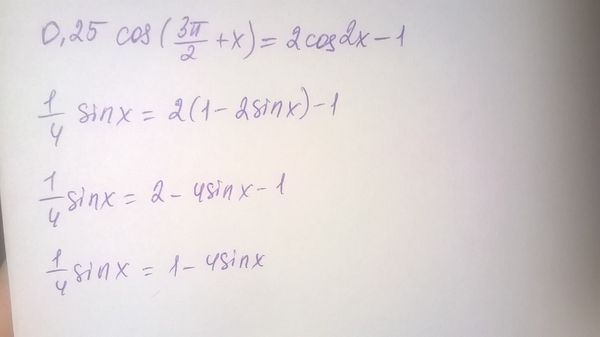 0,25 cos(3π/2 + x) = 2cos2x - 1
1/4 sinx = 2(1 - 2sinx) - 1
1/4 sinx = 2 - 4sinx - 1
1/4 sinx = 1 - 4sinx